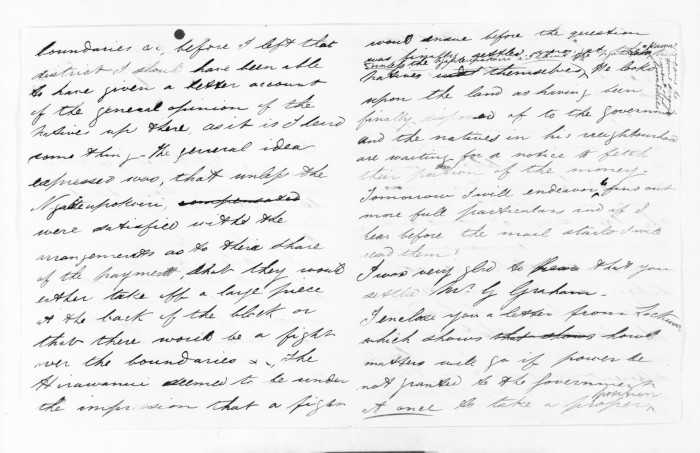 boundaries &c, before I left that
district I should have been able
to have given a better account
of the general opinion of the
Natives up there, as it is I heard
some thing – The general idea
expressed was, that unless the
compensated
were satisfied with the
arrangements as to their share
of the payment, that they would
either take off a large piece
at the back of the block or
that there would be a fight
over the boundaries &c, The
Hirawanui seemed to be under
the impression that a fight
would ensue before the question
was finally settled
Natives themselves, He looks
upon the land as having been
finally disposed of to the Government
and the natives in his neighbourhood
are waiting for a notice to fetch
their portion of the money.
Tomorrow I will endeavor to find out
more full particulars and if I
hear before the mail starts I will
send them.
I was very glad to hear that you
settled Mr. G Graham –
I enclose you a letter from Locke
which shows that shows how
matters will go if power be
not granted to the Government
position
at once to take a proper